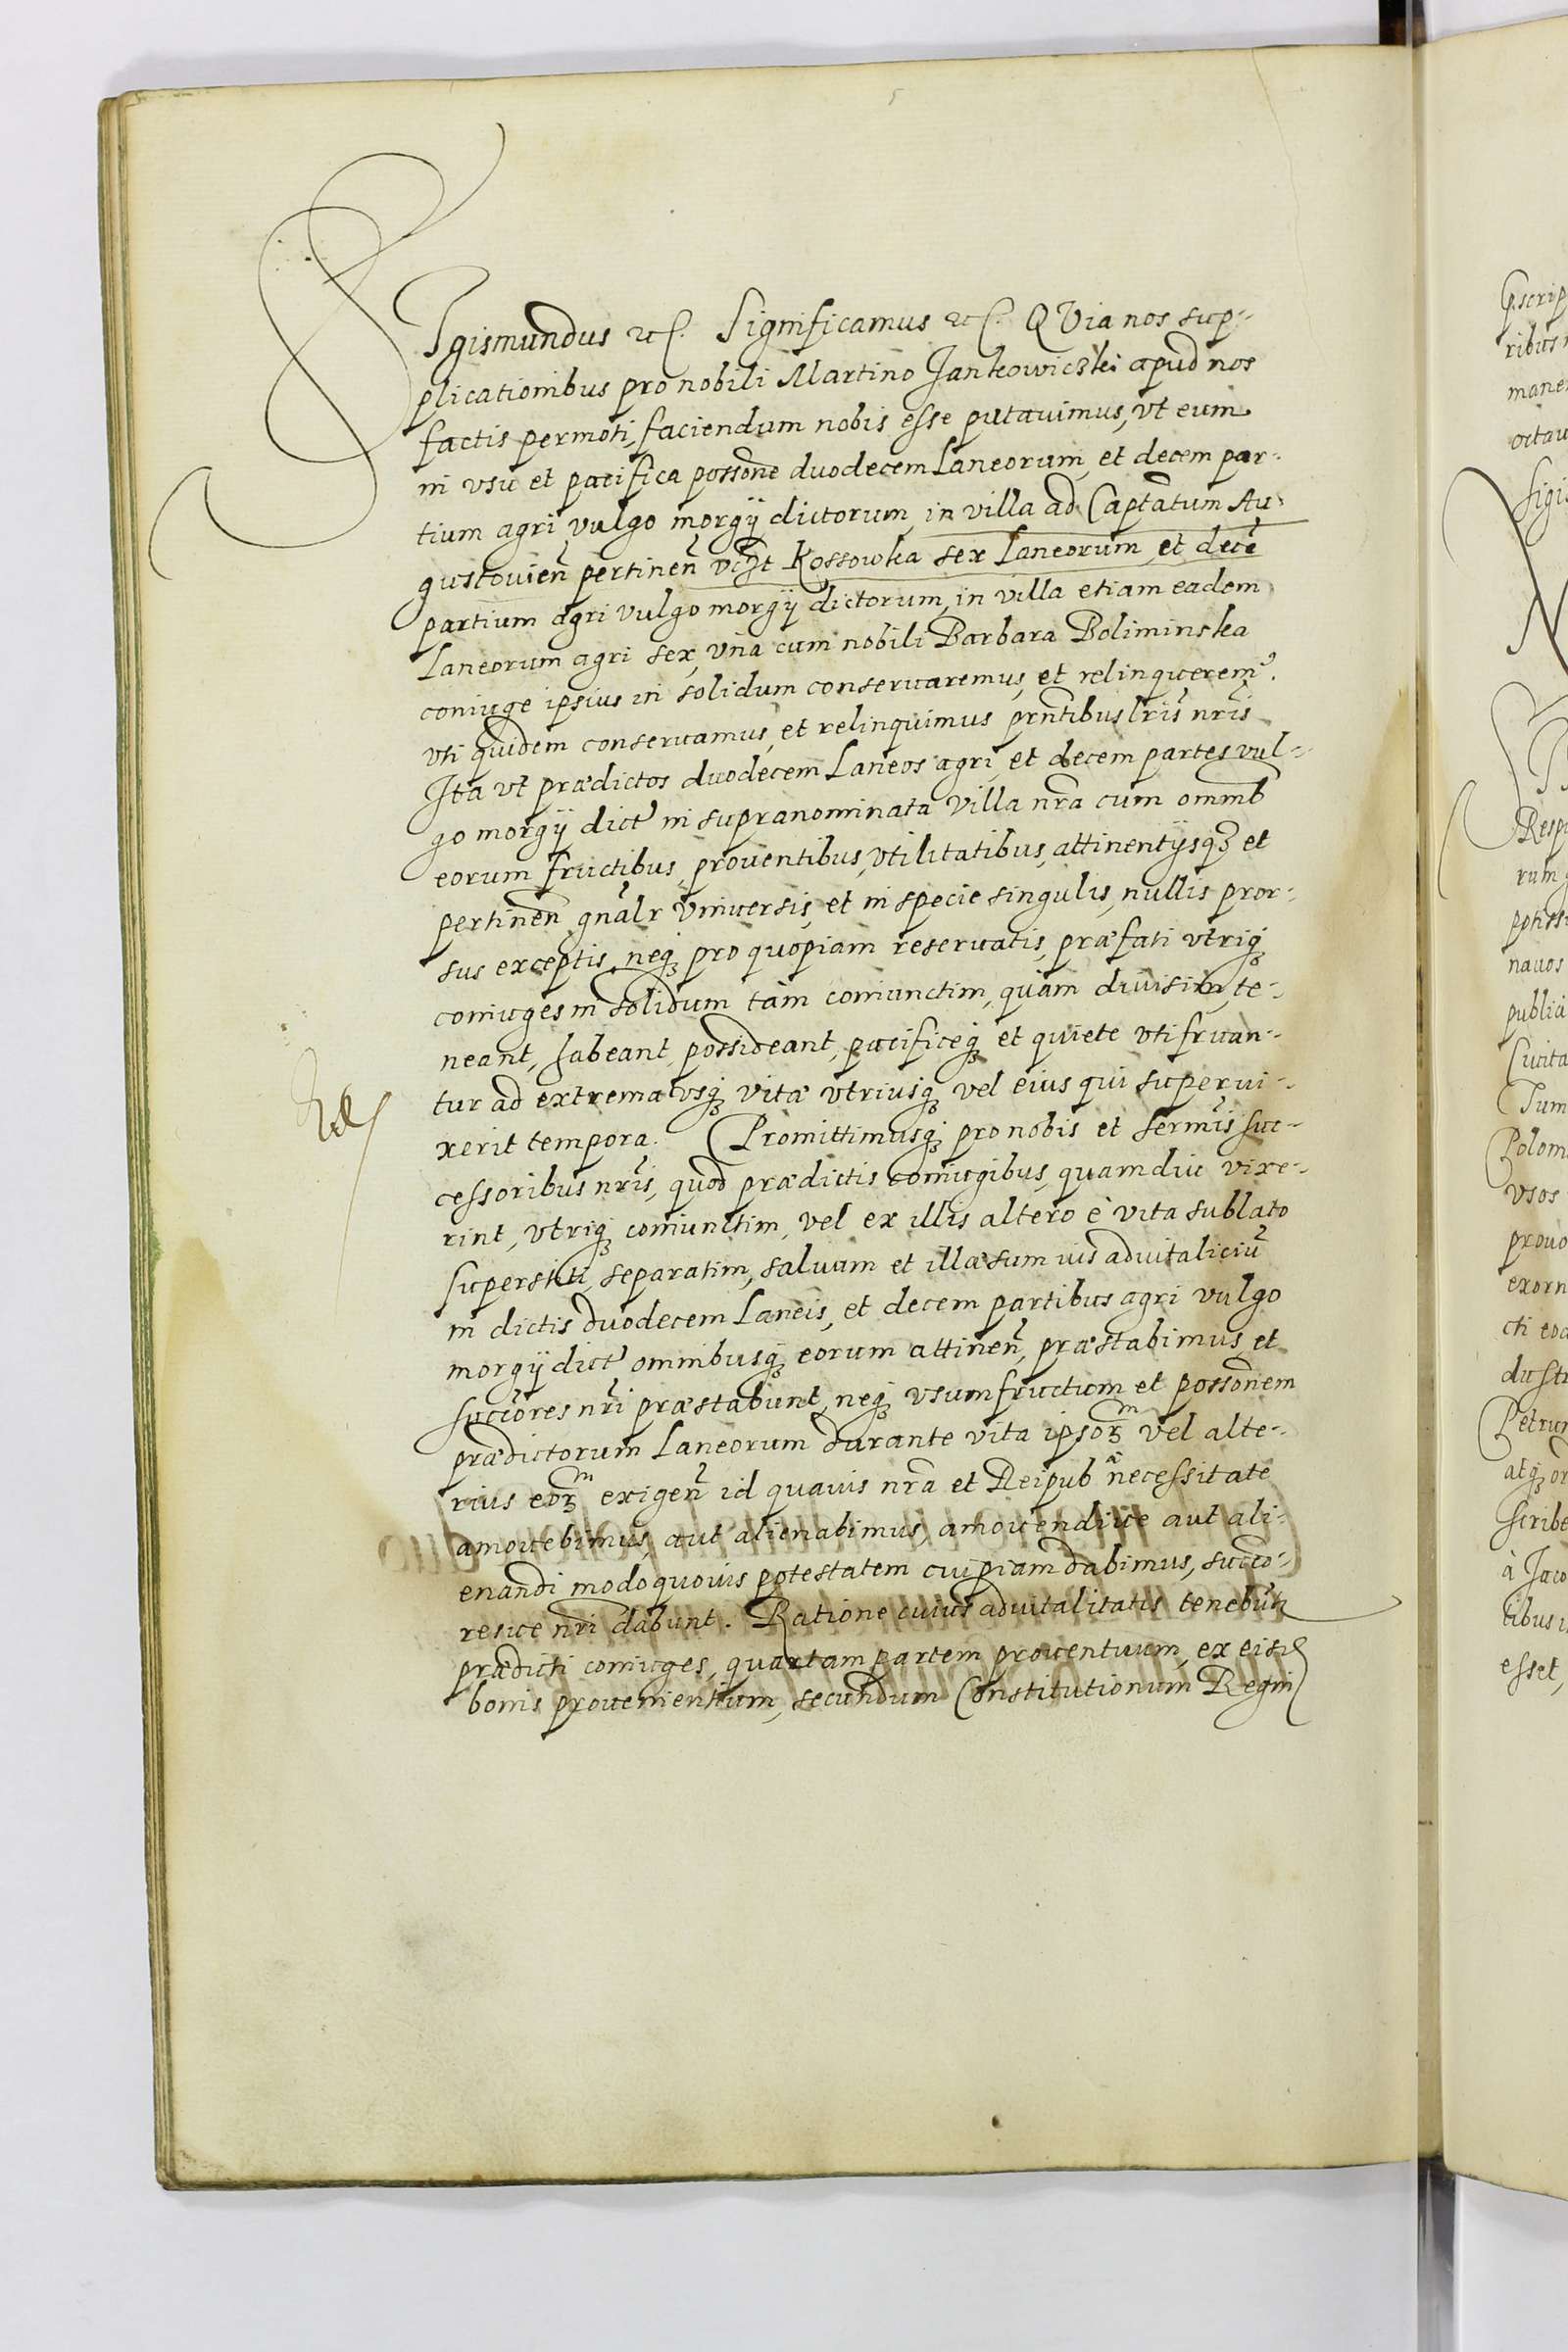 Sigismundus etc. Significamus etc. QVia nos sup-
plicationibus pro nobili Martino Jankowiczki apud nos
factis permoti, faciendum nobis esse putauimus, vt eum
in vsu et pacifica possone duodecem Laneorum, et decem par-
tium agri vulgo morgÿ dictorum, in villa ad Captatum Au-
gustouien̄ pertinen̄ vdzt Kossowka sex Laneorum, et decē
partium agri vulgo morgÿ dictorum, in villa etiam eadem
Laneorum agri sex, vna cum nobili Barbara Boliminska
coniuge ipsius in solidum conseruaremus, et relinquerem9.
vti quidem conseruamus, et relinquimus prntibus lris nris
Jta vt prædictos duodecem Laneos agri, et decem partes vul-
go morgÿ dict in supranominata villa nra cum omnib
eorum fructibus, prouentibus, vtilitatibus, attinentÿsqꝫ et
pertinen̄ gnalr vniuersis, et in specie singulis, nullis pror-
sus exceptis, neqꝫ pro quopiam reseruatis, præfati vtriqꝫ
coniuges in solidum tàm coniunctim, quàm diuisim, te-
neant, habeant, possideant, pacificeqꝫ et quiete vtifruan-
tur ad extrema vsqꝫ vitæ vtriusqꝫ vel eius qui superui-
xerit tempora. Promittimusqꝫ pro nobis et sermis suc-
cessoribus nris, quod prædictis coniugibus, quamdiu vixe-
rint, vtriqꝫ coniunctim, vel ex illis altero è vita sublato
superstiti, separatim, saluum et illæsum ius aduitaliciū
in dictis duodecem Laneis, et decem partibus agri vulgo
morgÿ dict omnibusqꝫ eorum attinen̄, præstabimus, et
succōres nri præstabunt, neqꝫ vsumfructum et possonem
prædictorum Laneorum durante vita ipsoꝝm vel alte-
rius eoꝝm exigen̄ id quauis nra et Reipub necessitate
amouebimus, aut alienabimus, amouendiue aut ali-
enandi modo quouis potestatem cuipiam dabimus, succo-
resue nri dabunt. Ratione cuius aduitalitatis tenebūt
prædicti coniuges, quartam partem prouentuum, ex eisd
bonis prouenientium, secundum Constitutionum Regni